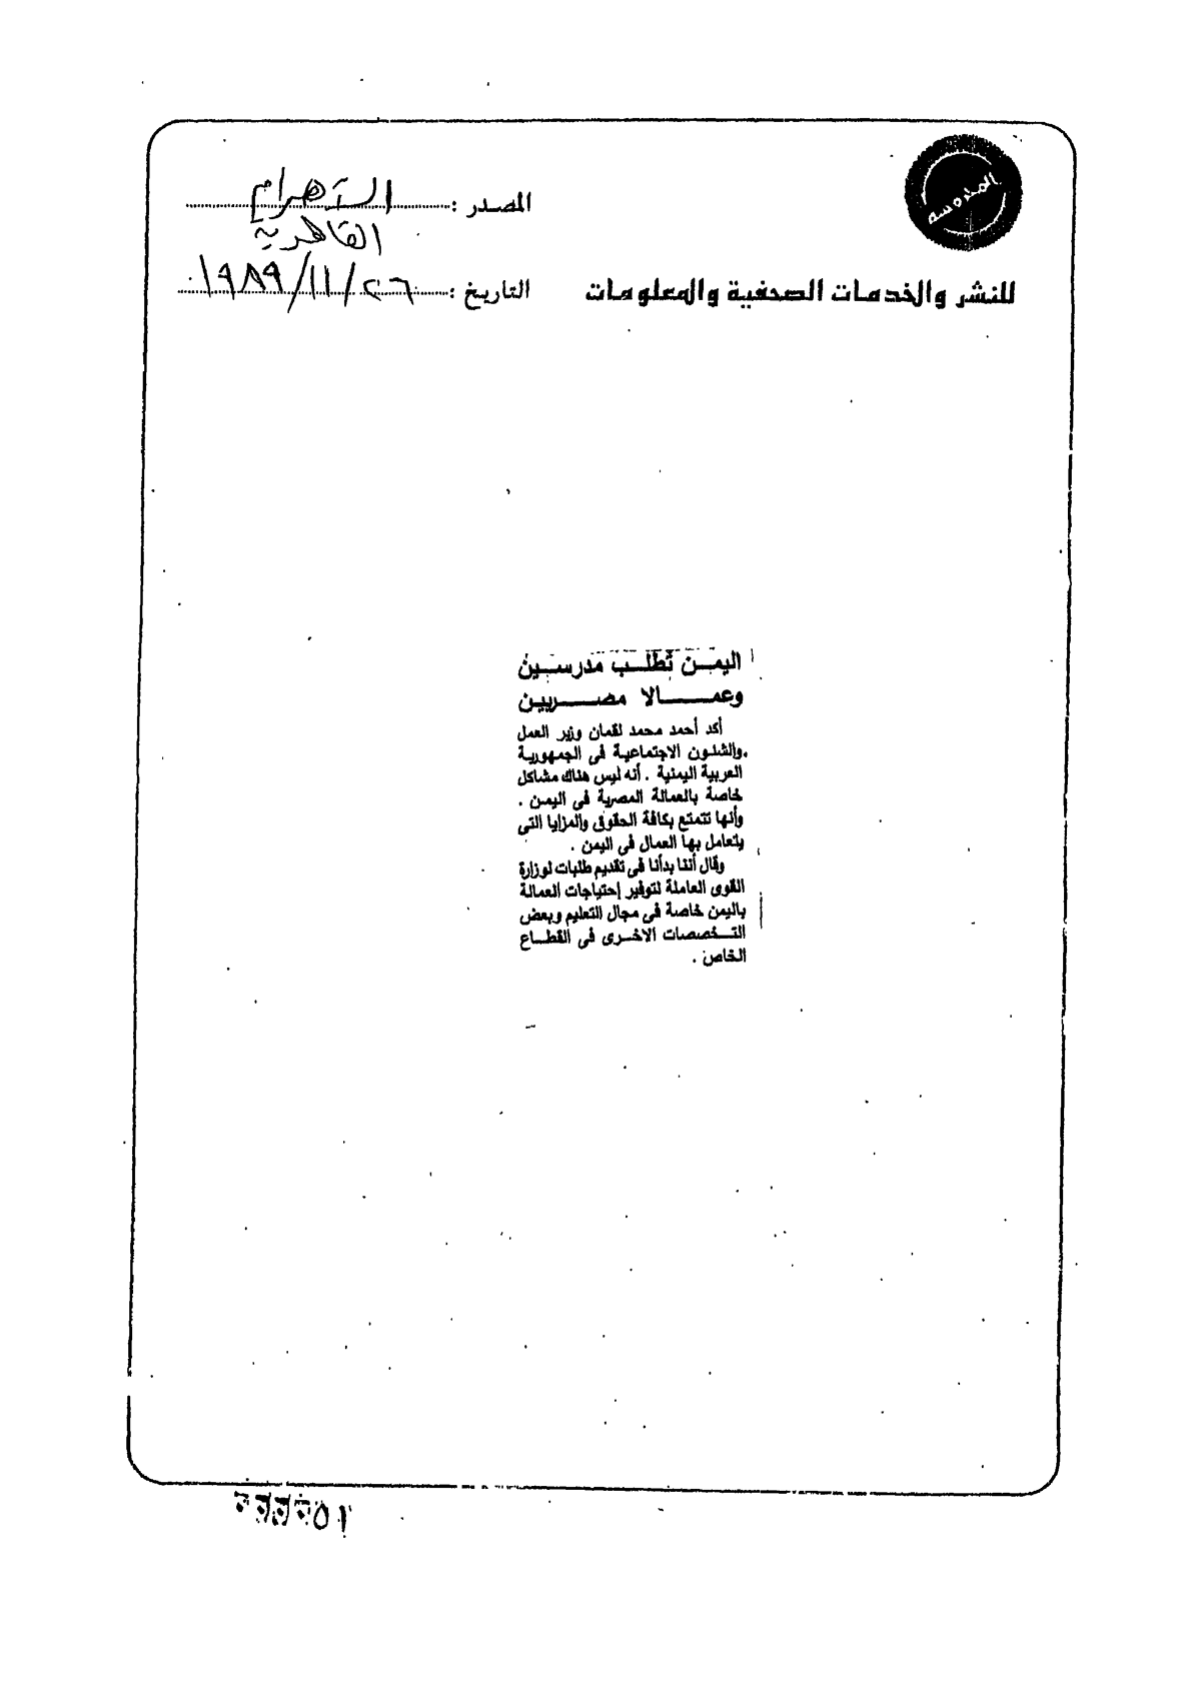 المحروسة
للنشر والخدمات الصحفية والمعلومات
المصدر : الأهرام
القاهرية
التاريخ : ٢٦/١١/١٩٨٩
اليمن تطلب مدرسين
وعمالا مصريين
أكد أحمد محمد لقمان وزير العمل
والشئون الاجتماعية فى الجمهورية
العربية اليمنية . أنه ليس هناك مشاكل
خاصة بالعمالة المصرية فى اليمن .
وأنها تتمتع بكافة الحقوق والمزايا التى
يتعامل بها العمال فى اليمن .
وقال أننا بدأنا فى تقديم طلبات لوزارة
القوى العاملة لتوفير إحتياجات العمالة
باليمن خاصة فى مجال التعليم وبعض
التخصصات الاخرى فى القطاع
الخاص .